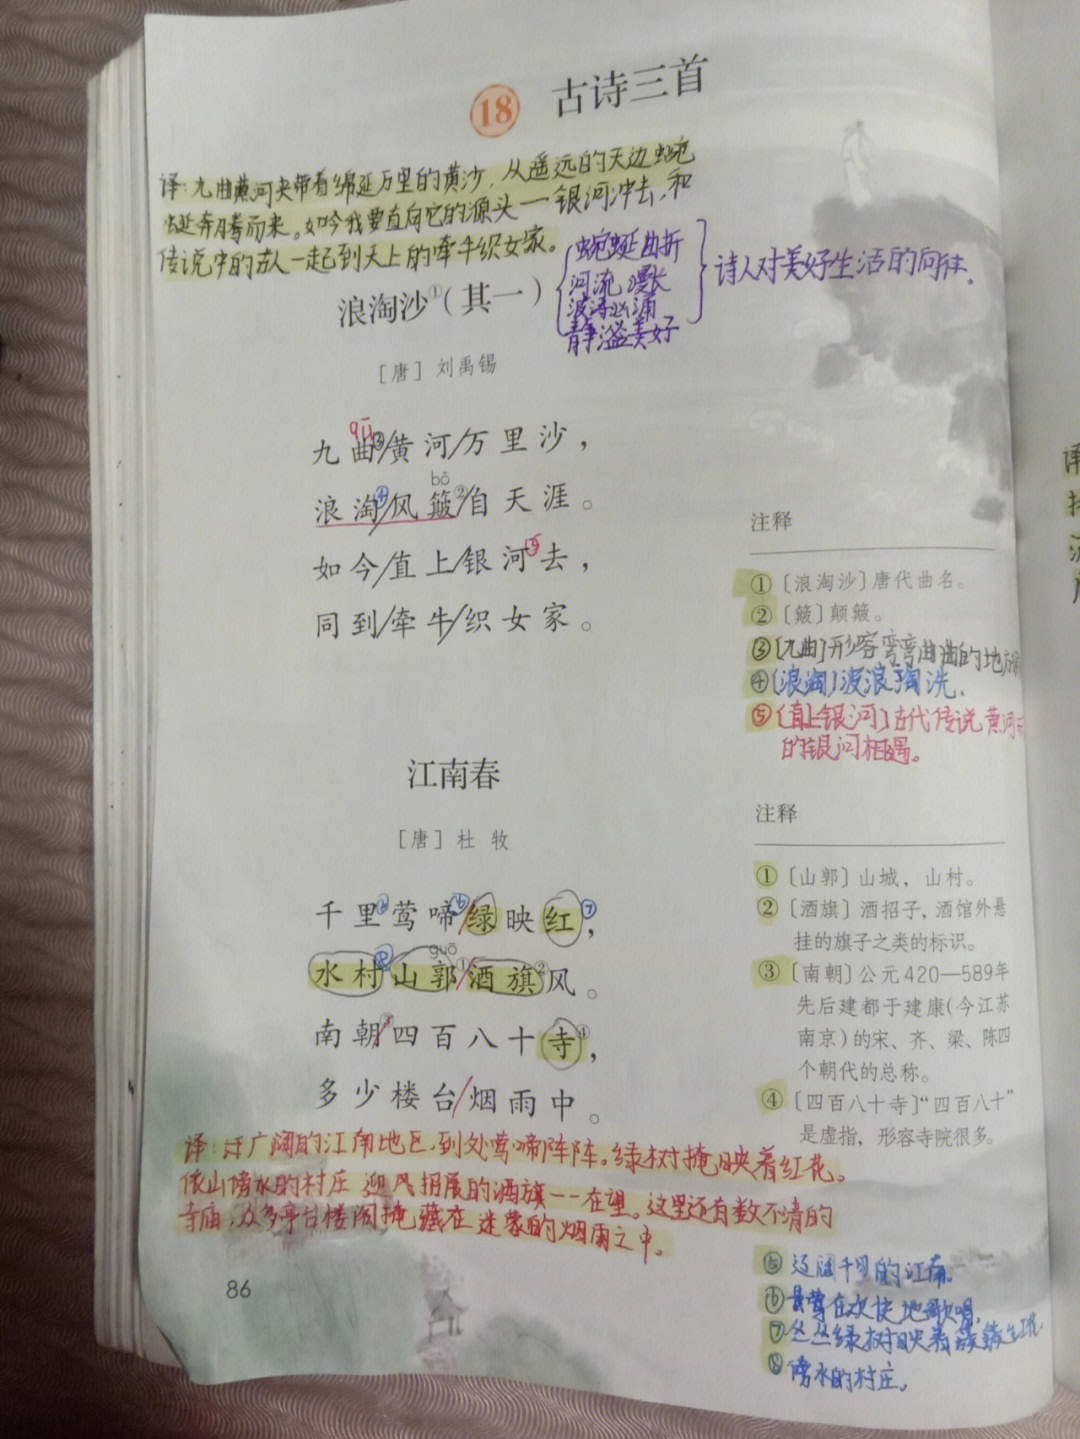 18 古诗三首
译:九曲黄河夹带着绵延万里的黄沙,从遥远的天边蜿
蜒奔腾而来。如今我要直向它的源头一银河冲去,和
传说中的古人一起到天上的牵牛织女家。
浪淘沙①(其一)
蜿蜒曲折
河流漫长
波涛汹涌
静谧美好
诗人对美好生活的向往.
[唐]刘禹锡
qū
九曲③/黄河/万里沙,
bǒ
浪淘④/风簸②/自天涯。
如今/直上/银河⑤去,
同到/牵牛/织女家。
注释
①〔浪淘沙〕唐代曲名。
②〔簸〕颠簸。
③〔九曲〕形容弯弯曲曲的地方
④〔浪淘〕波浪淘洗.
⑤〔直上银河〕古代传说黄河
的银河相遇。
江南春
[唐]杜牧
千里⑤莺啼⑥/绿映红⑦,
guō
水村⑧山郭①/酒旗②风。
南朝③/四百八十寺④,
多少楼台/烟雨中。
注释
①〔山郭〕山城,山村。
②〔酒旗〕酒招子,酒馆外悬
挂的旗子之类的标识。
③〔南朝〕公元420—589年
先后建都于建康(今江苏
南京)的宋、齐、梁、陈四
个朝代的总称。
④〔四百八十寺〕“四百八十”
是虚指,形容寺院很多。
译:广阔的江南地区,到处莺啼阵阵。绿树掩映着红花。
依山傍水的村庄 迎风招展的酒旗一一在望。这里还有数不清的
寺庙,众多亭台楼阁掩藏在迷蒙的烟雨之中。
86
⑤辽阔千里的江南.
⑥莺在欢快地歌唱.
⑦丛丛绿树映着簇簇红花.
⑧傍水的村庄.